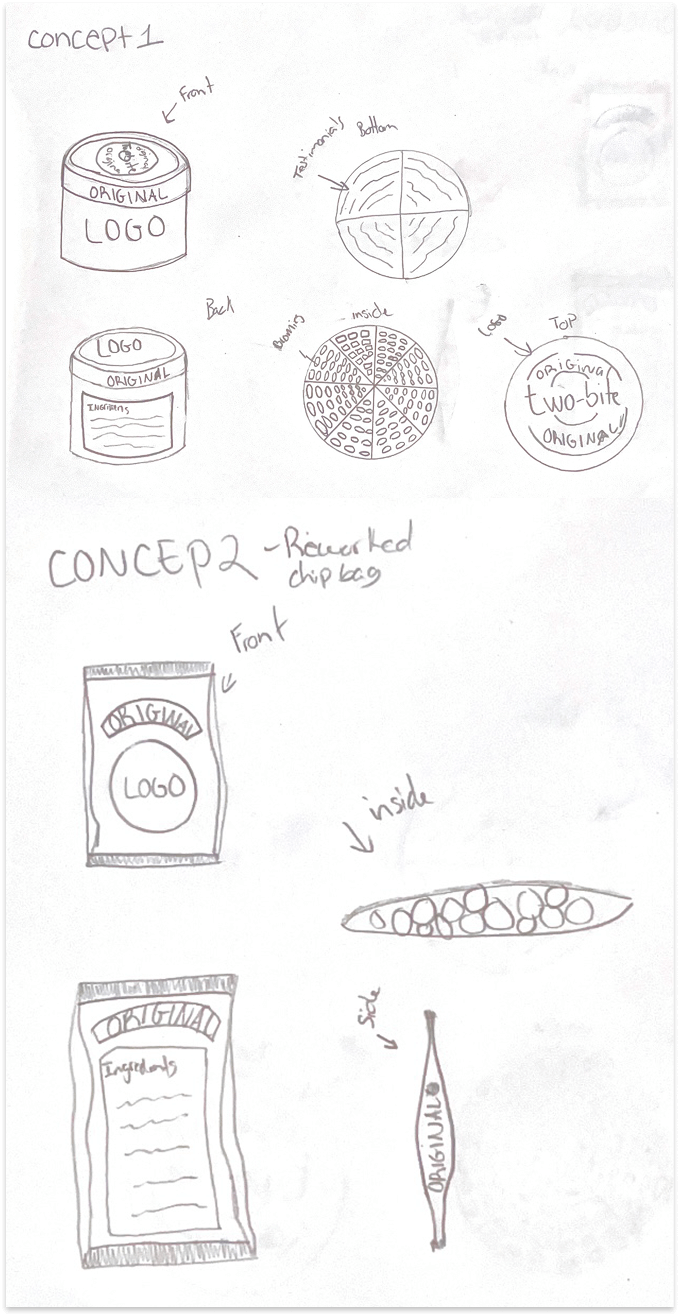 concept 1
Front
two-bite
ORIGINAL
LOGO
Testimonials
Bottom
Back
LOGO
ORIGINAL
inside
LOGO
TOP
ORIGINAL
two-bite
ORIGINAL
CONCEP 2 - Reworked
chip bag
Front
ORIGINAL
LOGO
inside
ORIGINAL
Ingredients
Side
ORIGINAL